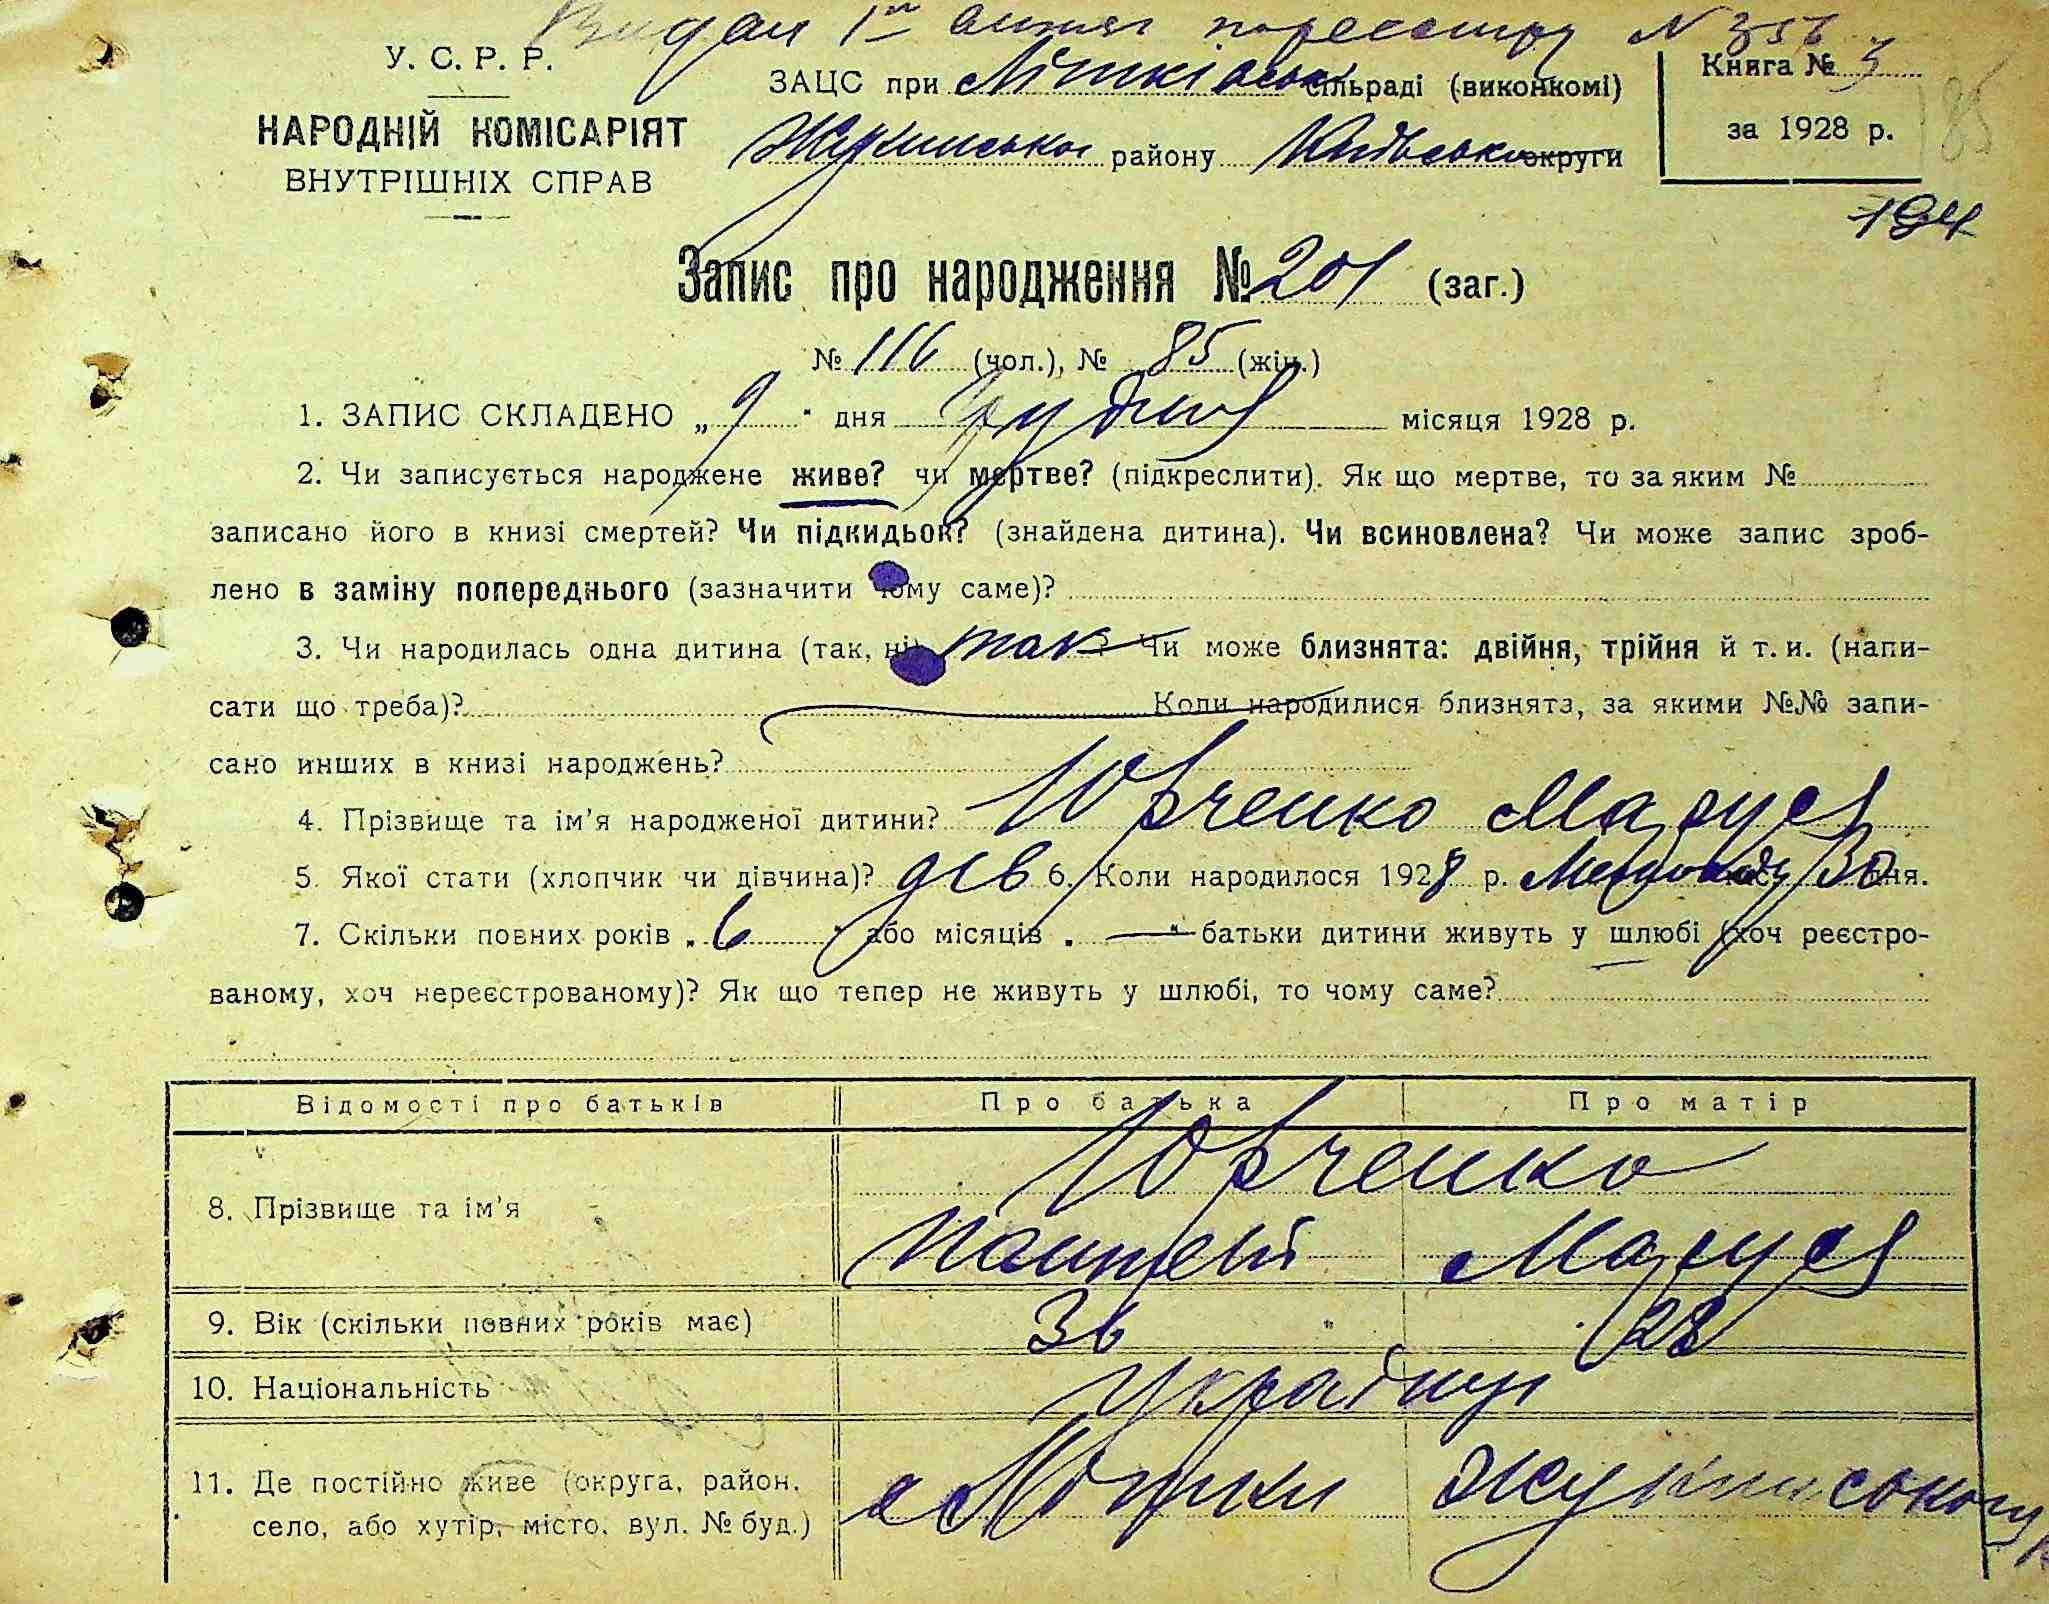 Видан 1й витяг N 356
У. С. Р. Р.
НАРОДНІЙ КОМІСАРІЯТ
ВНУТРІШНІХ СПРАВ
ЗАЦС при Літківськ сільраді (виконкомі)
району Київсько округи
Книга № 3
за 1928 р.
185
194
Запис про народження № 201 (заг.)
№ 116 (чол.), № 85 (жін.)
1. ЗАПИС СКЛАДЕНО „ 9 " дня Грудня місяця 1928 р.
2. Чи записується народжене живе? чи мертве? (підкреслити). Як що мертве, то за яким №
записано його в книзі смертей? Чи підкидьок? (знайдена дитина). Чи всиновлена? Чи може запис зроб-
лено в заміну попереднього (зазначити чому саме)?
3. Чи народилась одна дитина (так, ні) так ? Чи може близнята: двійня, трійня й т. и. (напи-
сати що треба)? Коли народилися близнята, за якими №№ запи-
сано инших в книзі народжень?
4. Прізвище та ім'я народженої дитини? Юрченко Маруся
5. Якої стати (хлопчик чи дівчина)? дів 6. Коли народилося 1928 р. 30 дня.
7. Скільки повних років „ 6 " або місяців „ — " батьки дитини живуть у шлюбі (хоч реєстро-
ваному, хоч нереєстрованому)? Як що тепер не живуть у шлюбі, то чому саме?
Відомості про батьків Про батька Про матір
8. Прізвище та ім'я Юрченко
Пантелій Маруся
9. Вік (скільки повних років має) 36 " 28
10. Національність Українці
11. Де постійно живе (округа, район, с Літки
село, або хутір, місто, вул. № буд.)